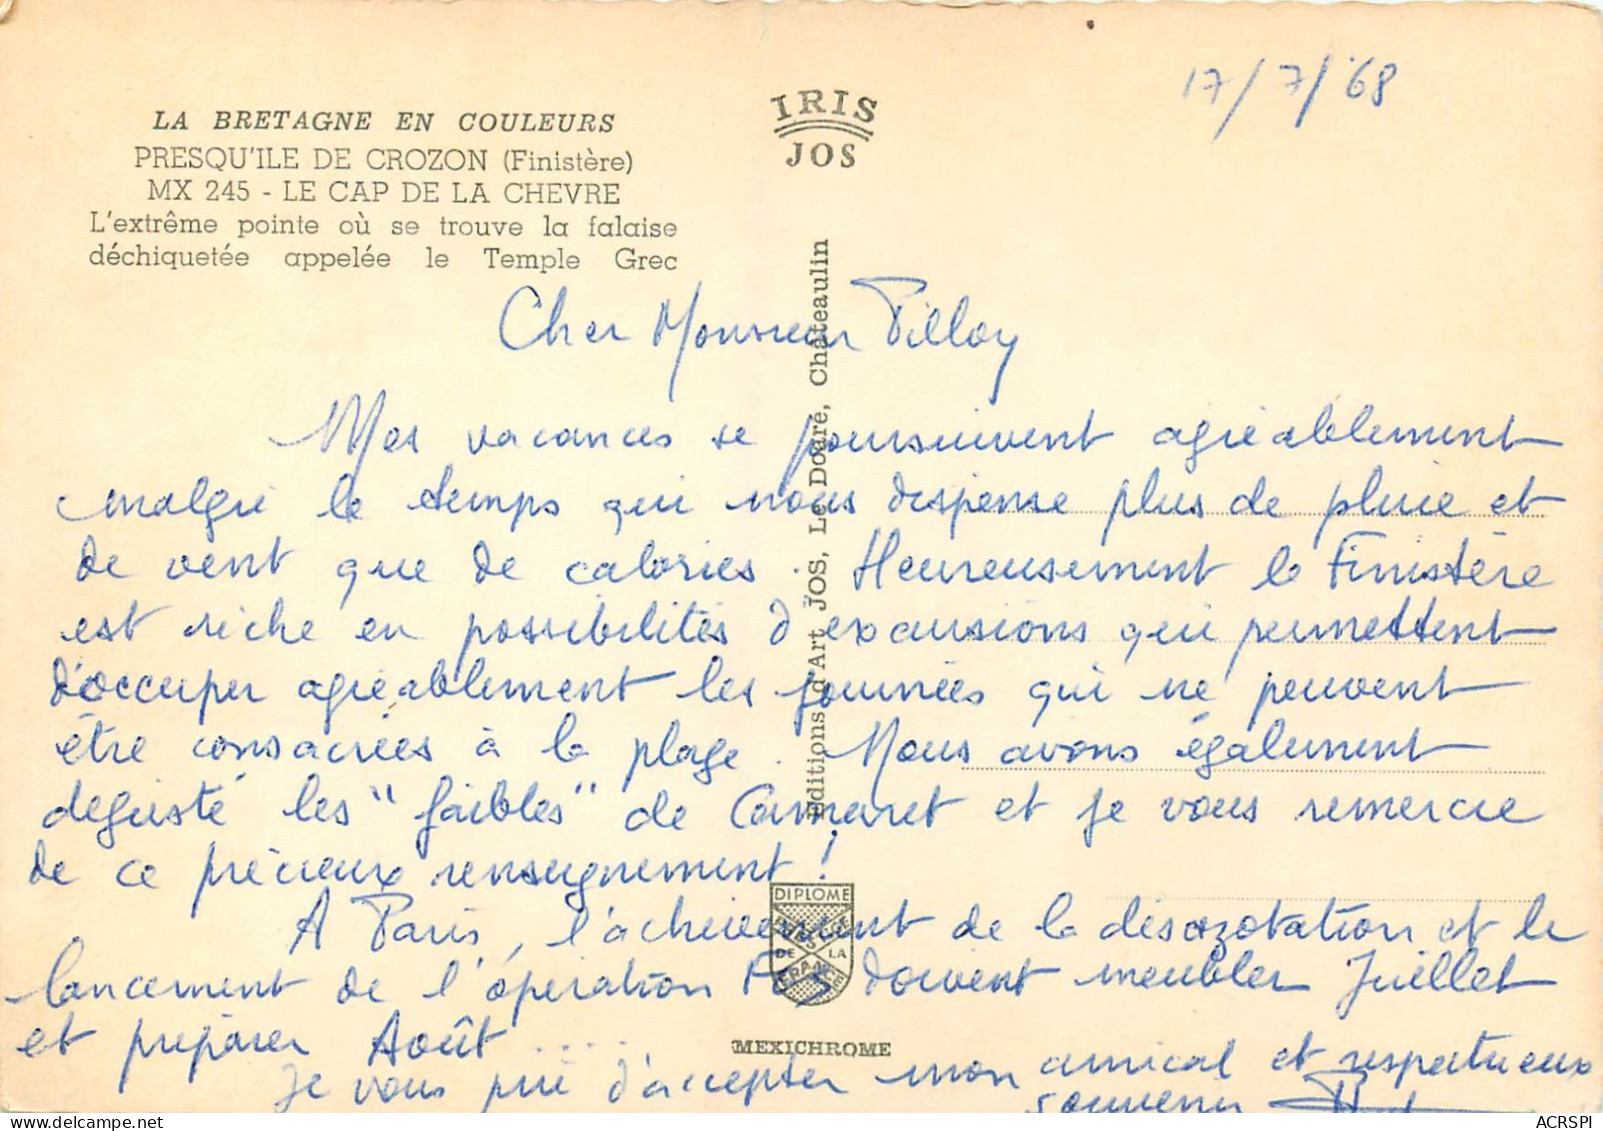 17/7/68
IRIS
JOS
LA BRETAGNE EN COULEURS
PRESQU'ILE DE CROZON (Finistère)
MX 245 - LE CAP DE LA CHEVRE
L'extrême pointe où se trouve la falaise
déchiquetée appelée le Temple Grec
Editions d'Art JOS, Le Doaré, Châteaulin
Cher Monsieur Pilloy
Mes vacances se poursuivent agréablement
malgré le temps qui nous dispense plus de pluie et
de vent que de calories. Heureusement le Finistère
est riche en possibilités d'excursions qui permettent
d'occuper agréablement les journées qui ne peuvent
être consacrées à la plage. Nous avons également
dégusté les "faibles" de Camaret et je vous remercie
de ce précieux renseignement !
A Paris, l'achèvement de la désazotation et le
lancement de l'opération Fos doivent meubler Juillet
et préparer Août ....
Je vous prie d'accepter mon amical et respectueux
souvenir
DIPLOME
PRESTIGE
DE LA
FRANCE
MEXICHROME
ACRSPI